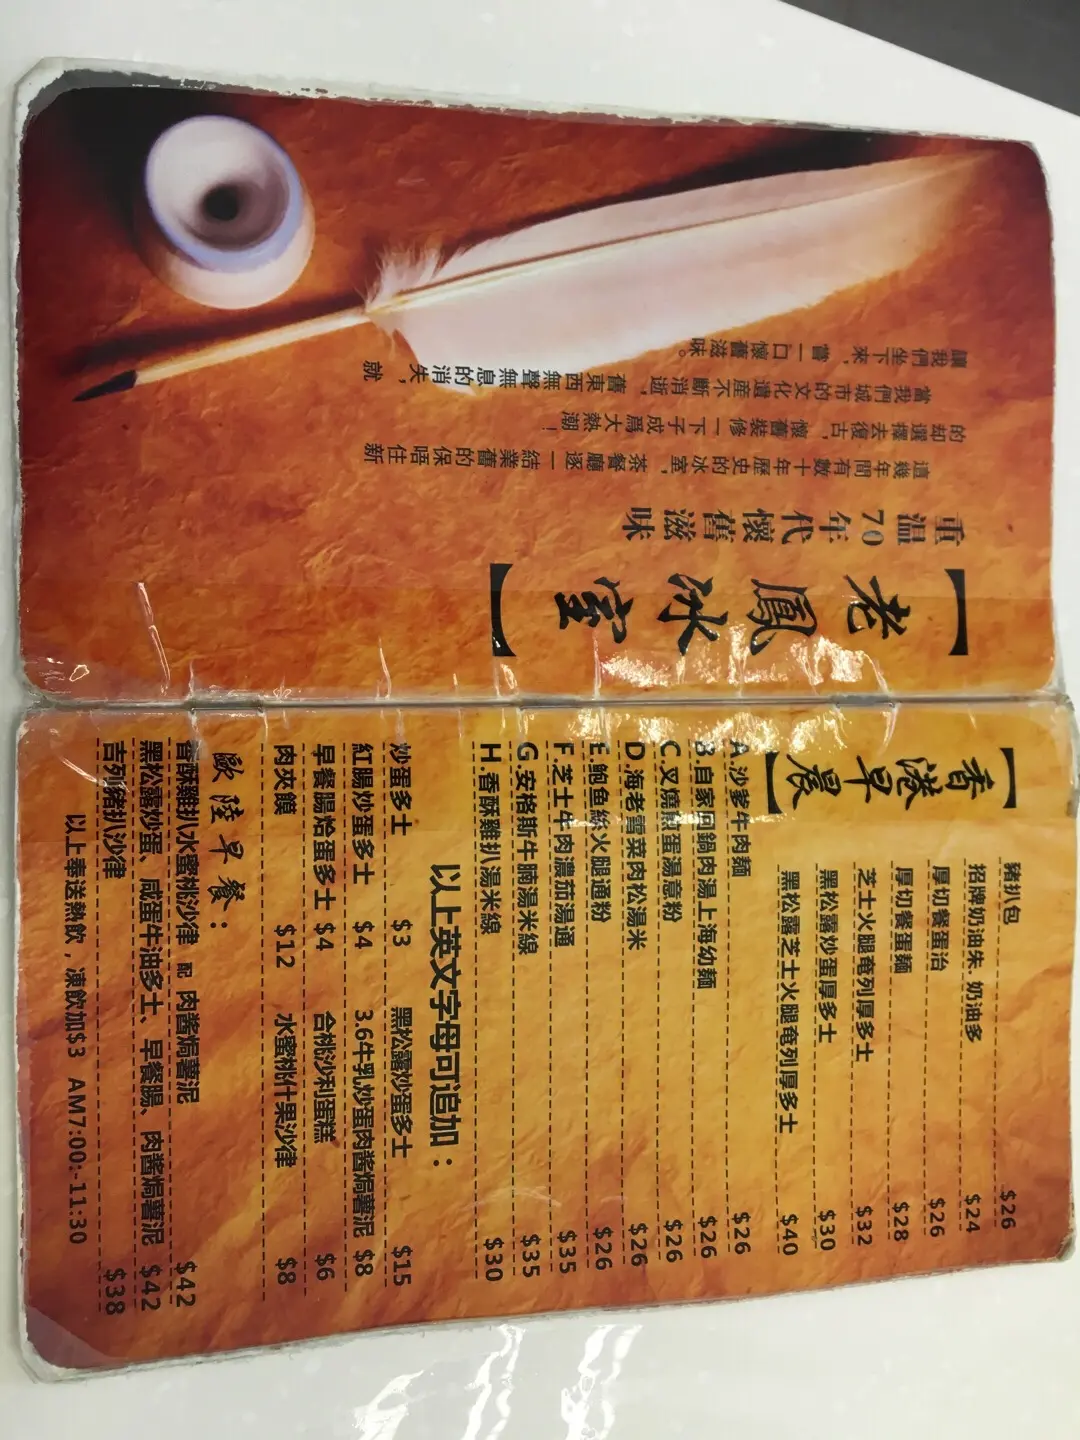 【老鳳冰室】
重溫70年代懷舊滋味
這幾年間有數十年歷史的冰室，茶餐廳逐一結業舊的保唔住新
的却選擇去復古，懷舊裝修一下子成爲大熱潮！
當我們城市的文化遺產不斷消逝，舊東西無聲無息的消失，就
讓我們坐下來，嘗一口懷舊滋味。
【香港早晨】
豬扒包 $26
招牌奶油朱、奶油多 $24
厚切餐蛋治 $26
厚切餐蛋麵 $28
芝士火腿奄列厚多士 $32
黑松露炒蛋厚多士 $30
黑松露芝士火腿奄列厚多士 $40
A.沙爹牛肉麵 $26
B.自家回鍋肉湯上海幼麵 $26
C.叉燒煎蛋湯意粉 $26
D.海老雪菜肉松湯米 $26
E.鮑魚絲火腿通粉 $26
F.芝士牛肉濃茄湯通 $35
G.安格斯牛腩湯米線 $35
H.香酥雞扒湯米線 $30
以上英文字母可追加：
炒蛋多士 $3 黑松露炒蛋多士 $15
紅腸炒蛋多士 $4 3.6牛乳炒蛋肉酱焗薯泥 $8
早餐腸烚蛋多士 $4 合桃沙利蛋糕 $6
肉夾饃 $12 水蜜桃什果沙律 $8
歐陸早餐：
香酥雞扒水蜜桃沙律 配 肉酱焗薯泥 $42
黑松露炒蛋、咸蛋牛油多士、早餐腸、肉酱焗薯泥 $42
吉列豬扒沙律 $38
以上奉送熱飲，凍飲加$3 AM7:00:-11:30